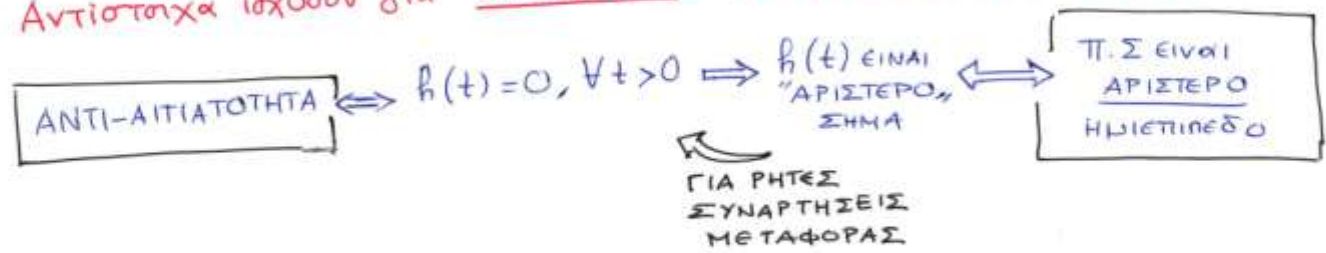 Αντίστοιχα ισχύουν για
ΑΝΤΙ-ΑΙΤΙΑΤΟΤΗΤΑ ⟺ h(t)=0, ∀t>0 ⟹ h(t) ΕΙΝΑΙ
"ΑΡΙΣΤΕΡΟ„
ΣΗΜΑ
⟺ Π.Σ ΕΙναι
ΑΡΙΣΤΕΡΟ
ΗμιεπιπεδΟ
ΓΙΑ ΡΗΤΕΣ
ΣΥΝΑΡΤΗΣΕΙΣ
ΜΕΤΑΦΟΡΑΣ